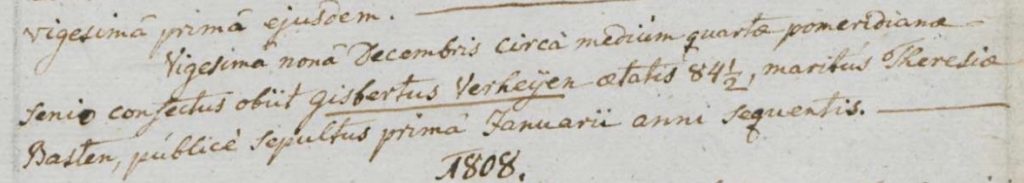 vigesimâ primâ ejusdem.
Vigesimâ nonâ Decembris circà mediúm quartæ pomeridianæ
senio confectus obiit Gisbertus Verheÿen ætatis 84 1/2, maritús Theresiæ
Basten, públicè sepultus primâ Januarii anni sequentis.
1808.